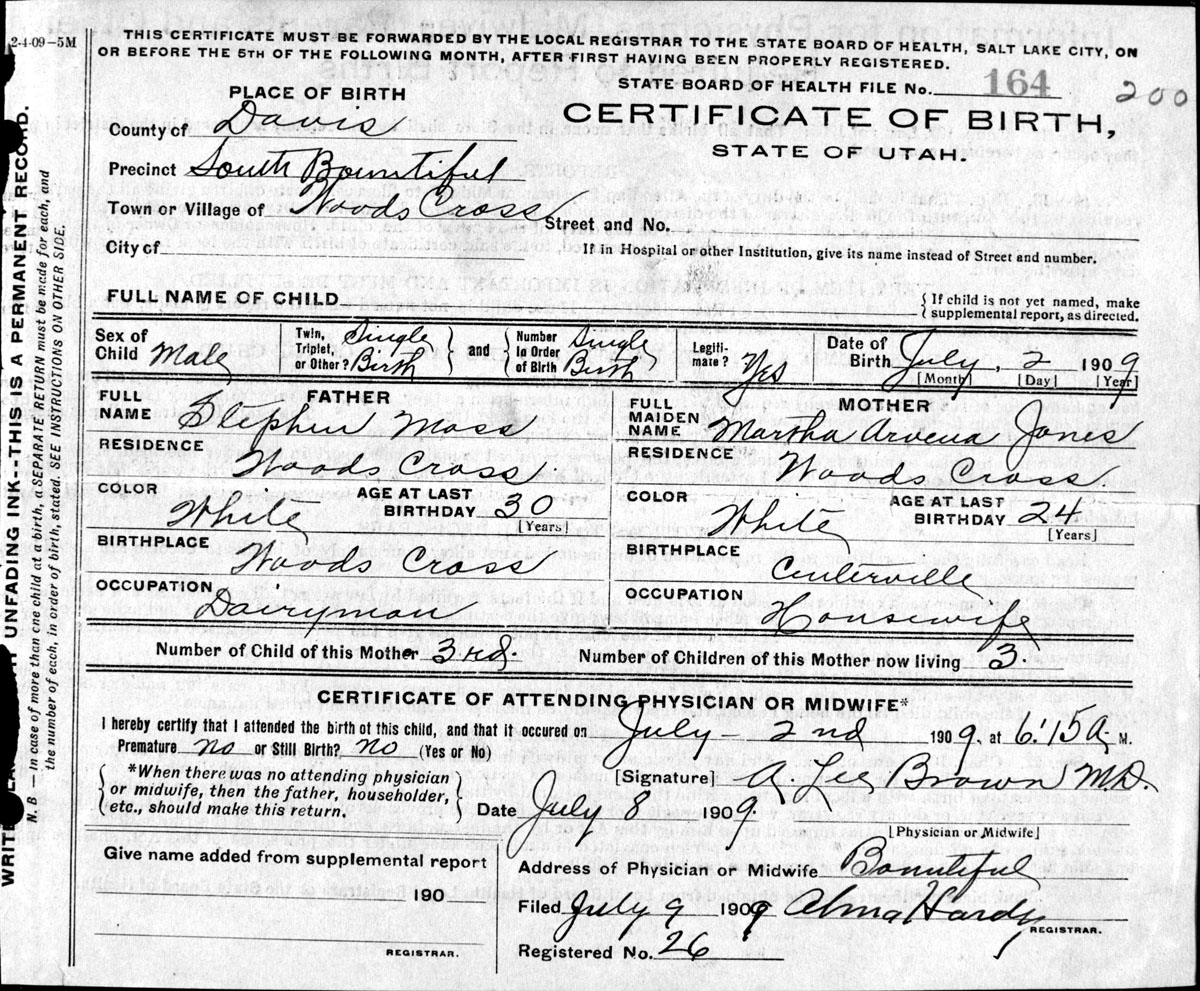 2-4-09-5M
THIS CERTIFICATE MUST BE FORWARDED BY THE LOCAL REGISTRAR TO THE STATE BOARD OF HEALTH, SALT LAKE CITY, ON
OR BEFORE THE 5TH OF THE FOLLOWING MONTH, AFTER FIRST HAVING BEEN PROPERLY REGISTERED.
STATE BOARD OF HEALTH FILE No. 164
200
PLACE OF BIRTH
CERTIFICATE OF BIRTH,
STATE OF UTAH.
County of Davis
Precinct South Bountiful
Town or Village of Woods Cross Street and No.
City of If in Hospital or other Institution, give its name instead of Street and number.
FULL NAME OF CHILD {If child is not yet named, make
supplemental report, as directed.
Sex of Child Male Twin, Triplet, or Other? Single Birth } and { Number in Order of Birth Single Birth Legiti-mate? Yes Date of Birth July, 2 1909
[Month] [Day] [Year]
FATHER
FULL NAME Stephen Moss
RESIDENCE Woods Cross.
COLOR White AGE AT LAST BIRTHDAY 30
[Years]
BIRTHPLACE Woods Cross
OCCUPATION Dairyman
MOTHER
FULL MAIDEN NAME Martha Arvena Jones
RESIDENCE Woods Cross.
COLOR White AGE AT LAST BIRTHDAY 24
[Years]
BIRTHPLACE Centerville
OCCUPATION Housewife
Number of Child of this Mother 3rd. Number of Children of this Mother now living 3.
CERTIFICATE OF ATTENDING PHYSICIAN OR MIDWIFE*
I hereby certify that I attended the birth of this child, and that it occured on July - 2nd 1909. at 6:15 A. M.
Premature no or Still Birth? no (Yes or No)
{*When there was no attending physician
or midwife, then the father, householder,
etc., should make this return.}
[Signature] A. Lee Brown M.D.
Date July 8 1909.
[Physician or Midwife]
Give name added from supplemental report
190
REGISTRAR.
Address of Physician or Midwife Bountiful
Filed July 9 1909 Alma Hardy
REGISTRAR.
Registered No. 26
UNFADING INK--THIS IS A PERMANENT RECORD.
WRITE
N. B.—In case of more than one child at a birth, a SEPARATE RETURN must be made for each, and
the number of each, in order of birth, stated. SEE INSTRUCTIONS ON OTHER SIDE.